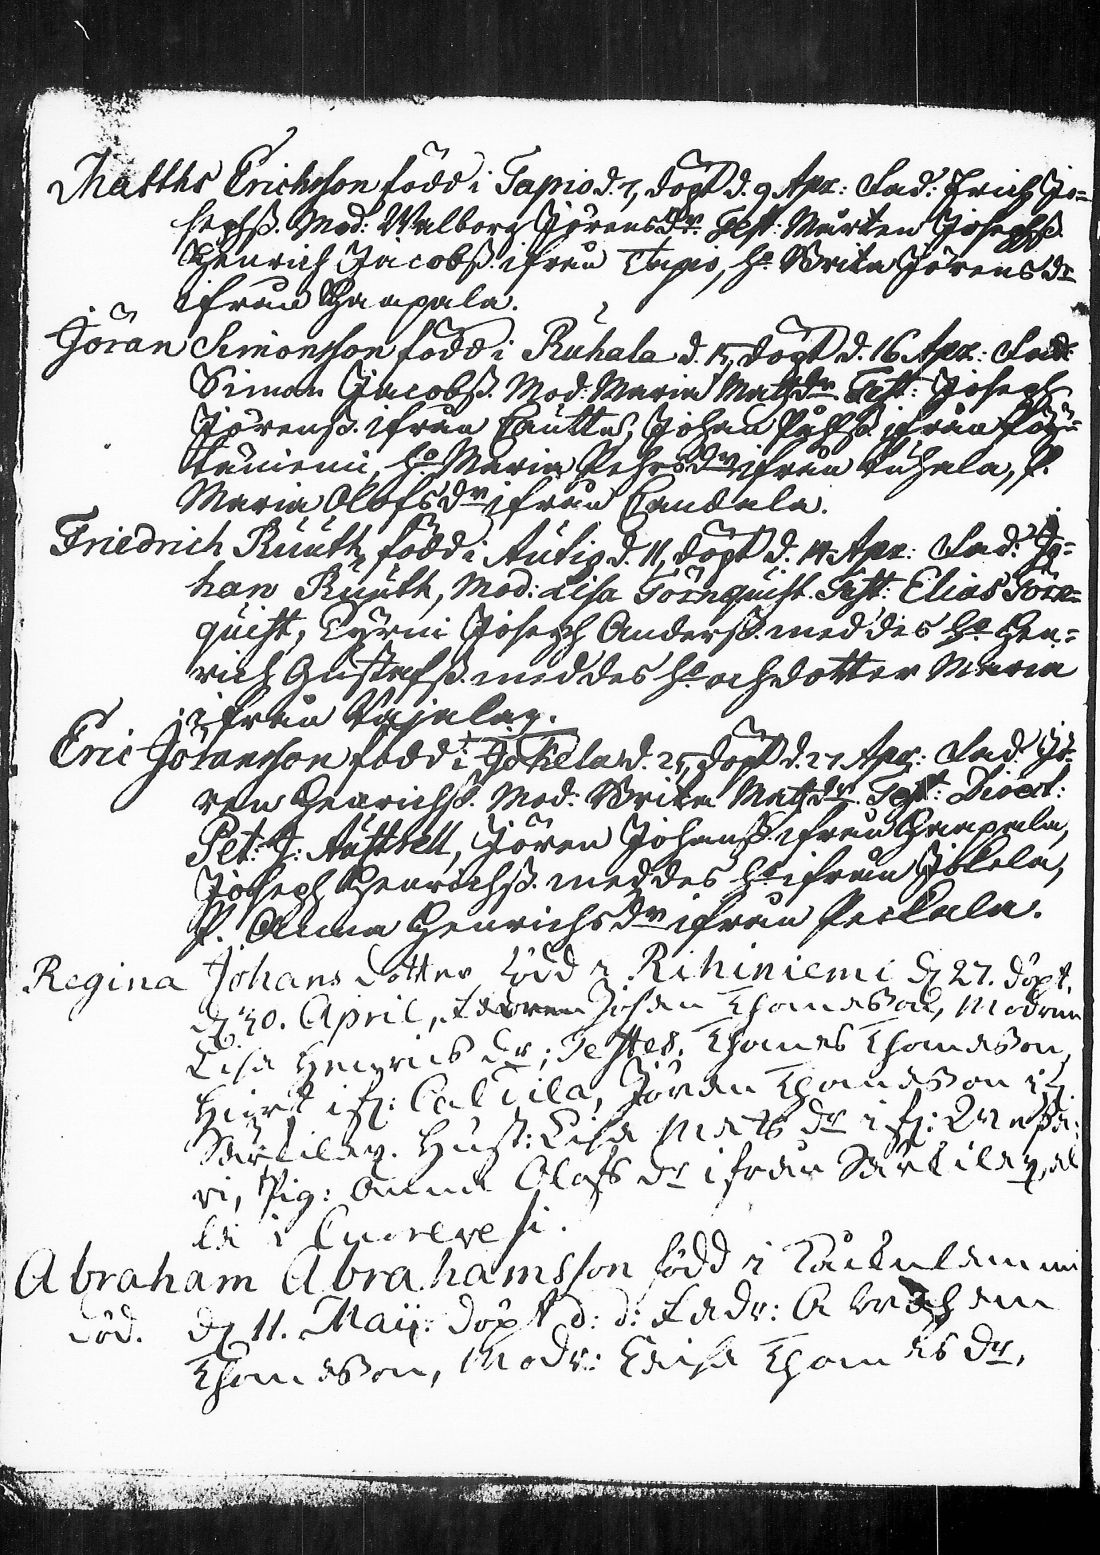 Matths Erichsson född i Tapio d. 7, döpt d. 9 Apr: Fad: Erich Jo=
sephß. Mod: Walborg Jörensdr. Test: Mårten Josephß.
Henrich Jacobß. ifrån Tapio, ho Brita Jörensdr
ifrån Haapala.
Jöran Simonsson född i Ruhala d. 15, döpt d. 16 Apr: Fad:
Simon Jacobß. Mod: Maria Matsdr. Test: Joseph
Jörenß. ifrån Cauttu, Johan ifrån
ho Maria Pehrsdr ifrån P.
Maria Olofsdr ifrån Candala.
Friedrich Ruuth, född i d. 11, döpt d. 14 Apr: Fad: Jo=
han Ruuth, Mod: Lisa Törnquist. Test: Elias Törn=
quist, Joseph Anderß. med des ho Hen=
rich Gustafß. med des ho och dotter Maria
ifrån
Eric Jöransson född i Jokela d. 25, döpt d. 27 Apr: Fad: Jö=
ren Henrichß. Mod: Brita Matsdr. Test:
Pet: J: Jören Johanß. ifrån Haapala,
Joseph Henrichß. med des ho ifrån Jokela,
P. Anna Henrichsdr ifrån Peckala.
Regina Johans dotter född i Rihiniemi d 27. döpt.
d 30. April, Fadren Johan Thomasson, Modren
Lisa Henrics dr; Testes. Thomas Thomasson,
ifr: Jöran Thomasson if:
Hust: Lisa Mats dr ifr:
ri, Pig: Anna Olofs dr ifrån
i
Abraham Abrahamsson född i
död. d 11. Maij: döpt d: d: Fadr: Abraham
Thomasson, Modr: Thomas dr,